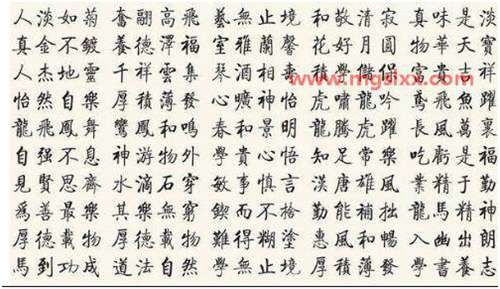 人淡如菊 奮翮高飛 藝無止境 和敬清寂 真味是淡
真金不鍍 養德澤福 室雅蘭馨 花好月圓 物華天寶
人杰地靈 千祥雲集 琴酒相 學 富貴吉祥
怡然自樂 厚積薄發 心曠神怡 虎嘯龍吟 鳶飛魚躍
龍飛鳳舞 鸞鳳和鳴 春和景明 龍騰虎躍 長風萬裏
自强不息 神游物外 學貴心悟 知足常樂 吃虧是福
見賢思齊 水滴石穿 敏事慎言 漢唐雄風 業精于勤
爲善最樂 其樂無窮 鍥而不捨 勤能補拙 龍馬精神
厚德載物 厚德載物 難得糊塗 惠風和暢 入幽出朗
馬到功成 道法自然 學無止境 厚積薄發 學書養志